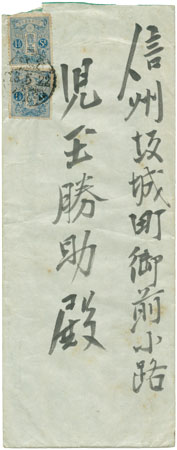 信州坂城町御前小路
児玉勝助殿